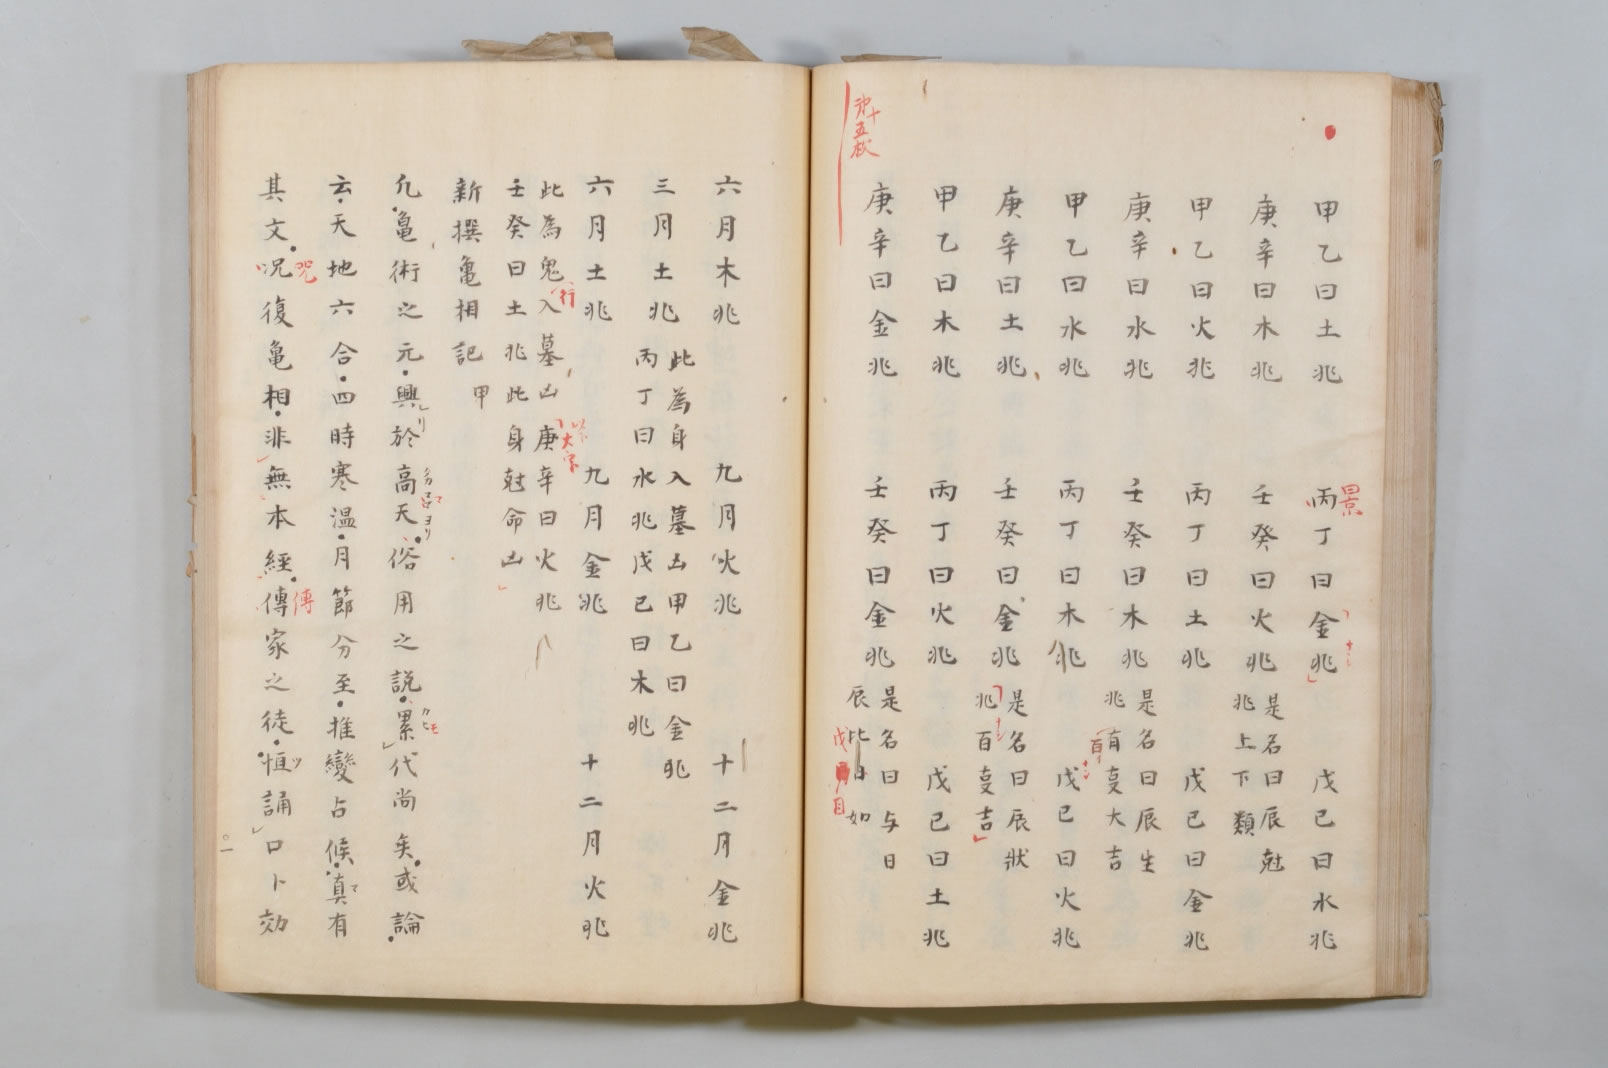 甲乙曰土兆 丙丁曰金兆 戊己曰水兆
庚辛曰木兆 壬癸曰火兆 是名曰辰尅
兆上下類
甲乙曰火兆 丙丁曰土兆 戊己曰金兆
庚辛曰水兆 壬癸曰木兆 是名曰辰生
兆有𡕥大吉
甲乙曰水兆 丙丁曰木兆 戊己曰火兆
庚辛曰土兆 壬癸曰金兆 是名曰辰狀
兆百𡕥吉
甲乙曰木兆 丙丁曰火兆 戊己曰土兆
庚辛曰金兆 壬癸曰金兆 是名曰与日
辰比日如
第十五枚
六月木兆 九月火兆 十二月金兆
三月土兆 此為身入墓凶甲乙曰金兆
丙丁曰水兆戊己曰木兆
六月土兆 九月金兆 十二月火兆
此為鬼入墓凶庚辛曰火兆
壬癸曰土兆此身尅命凶
新撰亀相記 甲
凡亀術之元興於高天俗用之説累代尚矣或論
云天地六合四時寒温月節分至推變占候真有
其文况復亀相非無本經傳家之徒恒誦口卜効